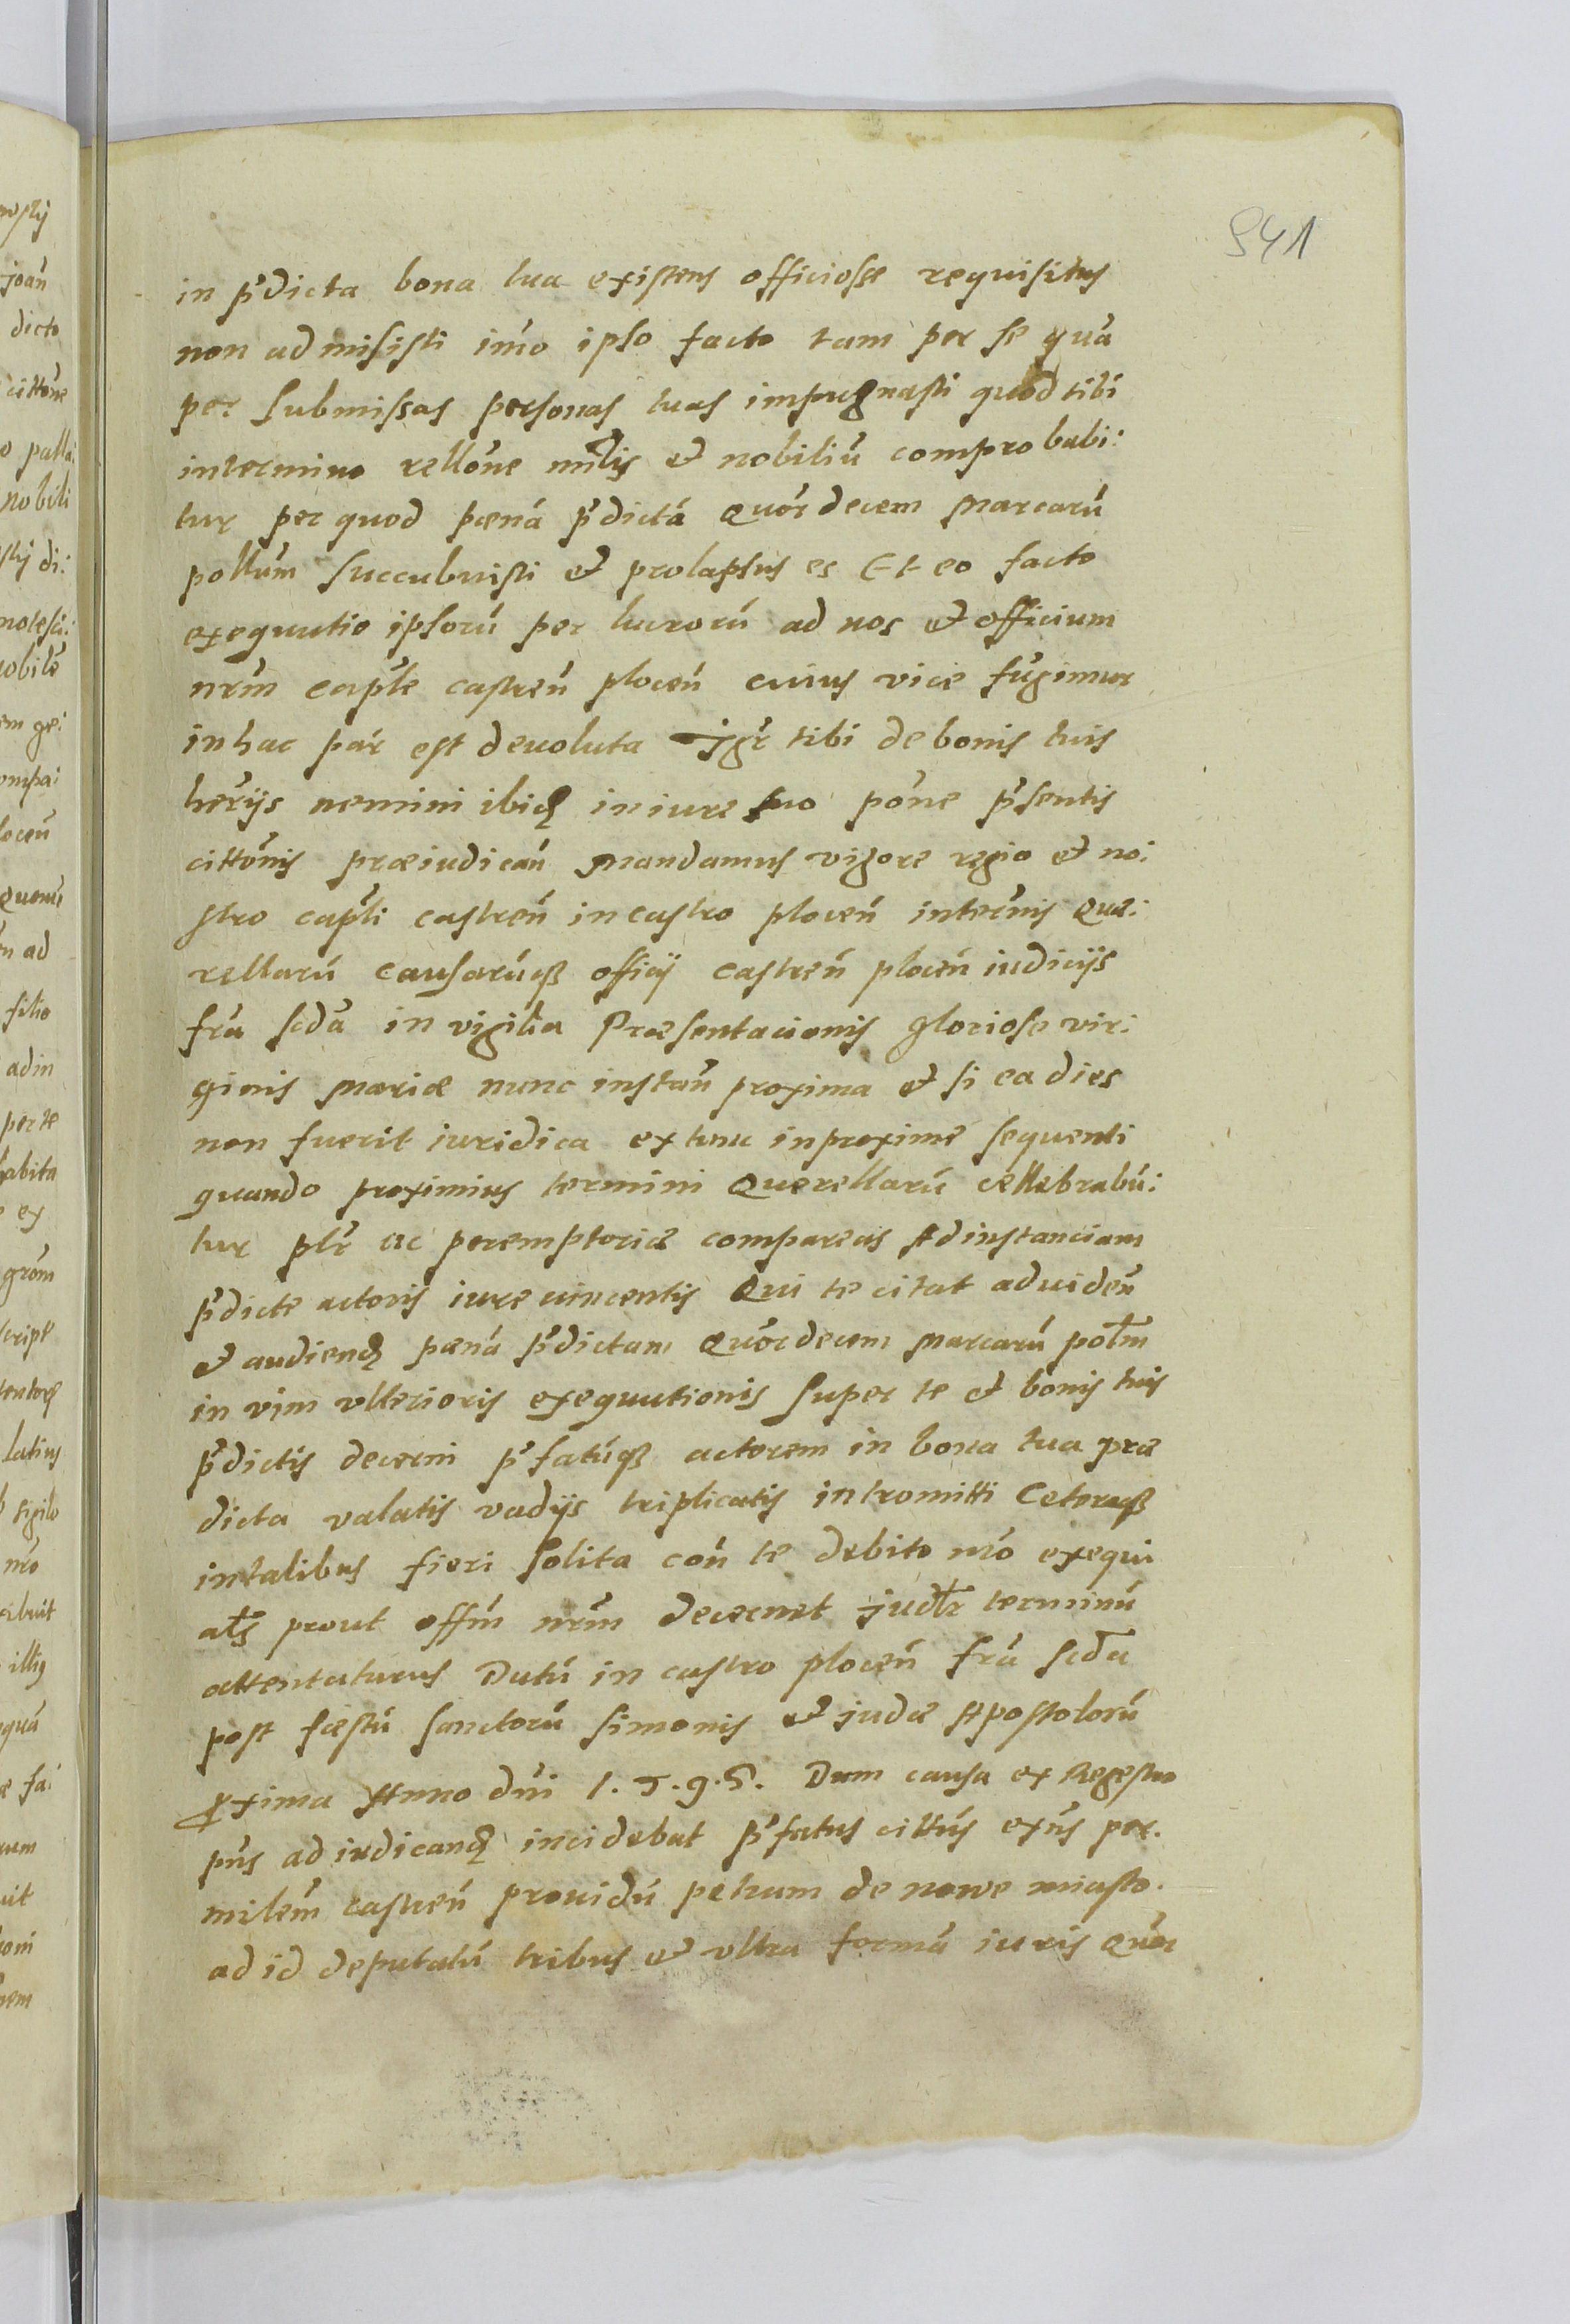 541
in p̃dicta bona tua existens officiosse requisitus
non admisisti imo ipso facto tam per se quã
per submissas personas tuas impugnasti quod tibi
intermino rellõne mĩlis et nobiliũ comprobabi:
tur per quod pænã p̃dictã Quor̃decem Marcarũ
pollũm succubuisti et prolapsus es Et eo facto
exequutio ipsorũ per lucrorũ ad nos et officium
nrm̃ Caplẽ castreñ ploceñ cuius vice fũgimur
in hac par̃ est devoluta Igr̃ tibi de bonis tuis
herỹs nemini ibid in iure suo põne p̃sentis
cittõnis præiudicañ Mandamus vigore regio et no:
stro caplĩ castreñ in castro ploceñ interm̃is Quæ:
rellarũ causarũq3 officij castreñ ploceñ iudicijs
frã scdã in vigilia Præsentacionis Gloriose vir:
ginis Mariæ nunc instañ proxima et si ea dies
non fuerit iuridica extunc inproxime sequenti
quando proximius termini Querellarũ cellebrabũ:
tur plr̃ ac peremptoriæ compareas Ad instanciam
p̃dicte actoris iure vincentis Qui te citat ad videñ
et audiend pænã p̃dictam Quor̃decem Marcarũ polm̃
in vim ulterioris exequutionis super te et bonis tuis
p̃dictis decerni p̃fatũq3 actorem in bona tua præ
dicta valatis vadijs triplicatis intromitti Ceteraq3
in talibus fieri solita coñ te debito mõ exequi
als̃ prout offm̃ nrm̃ decernet judlr̃ terminũ
attentaturus Datũ in castro ploceñ frã scdã
post fæstũ sanctorũ simonis et judæ Apostolorũ
pxima Anno dñi 1.5.9.5. Dum causa ex Regestro
pñs ad iudicand incidebat p̃fatus cittũs exñs per.
milem̃ castreñ providũ petrum de nowe miasto.
ad id deputatũ tribus et ultra formã iuris Quor